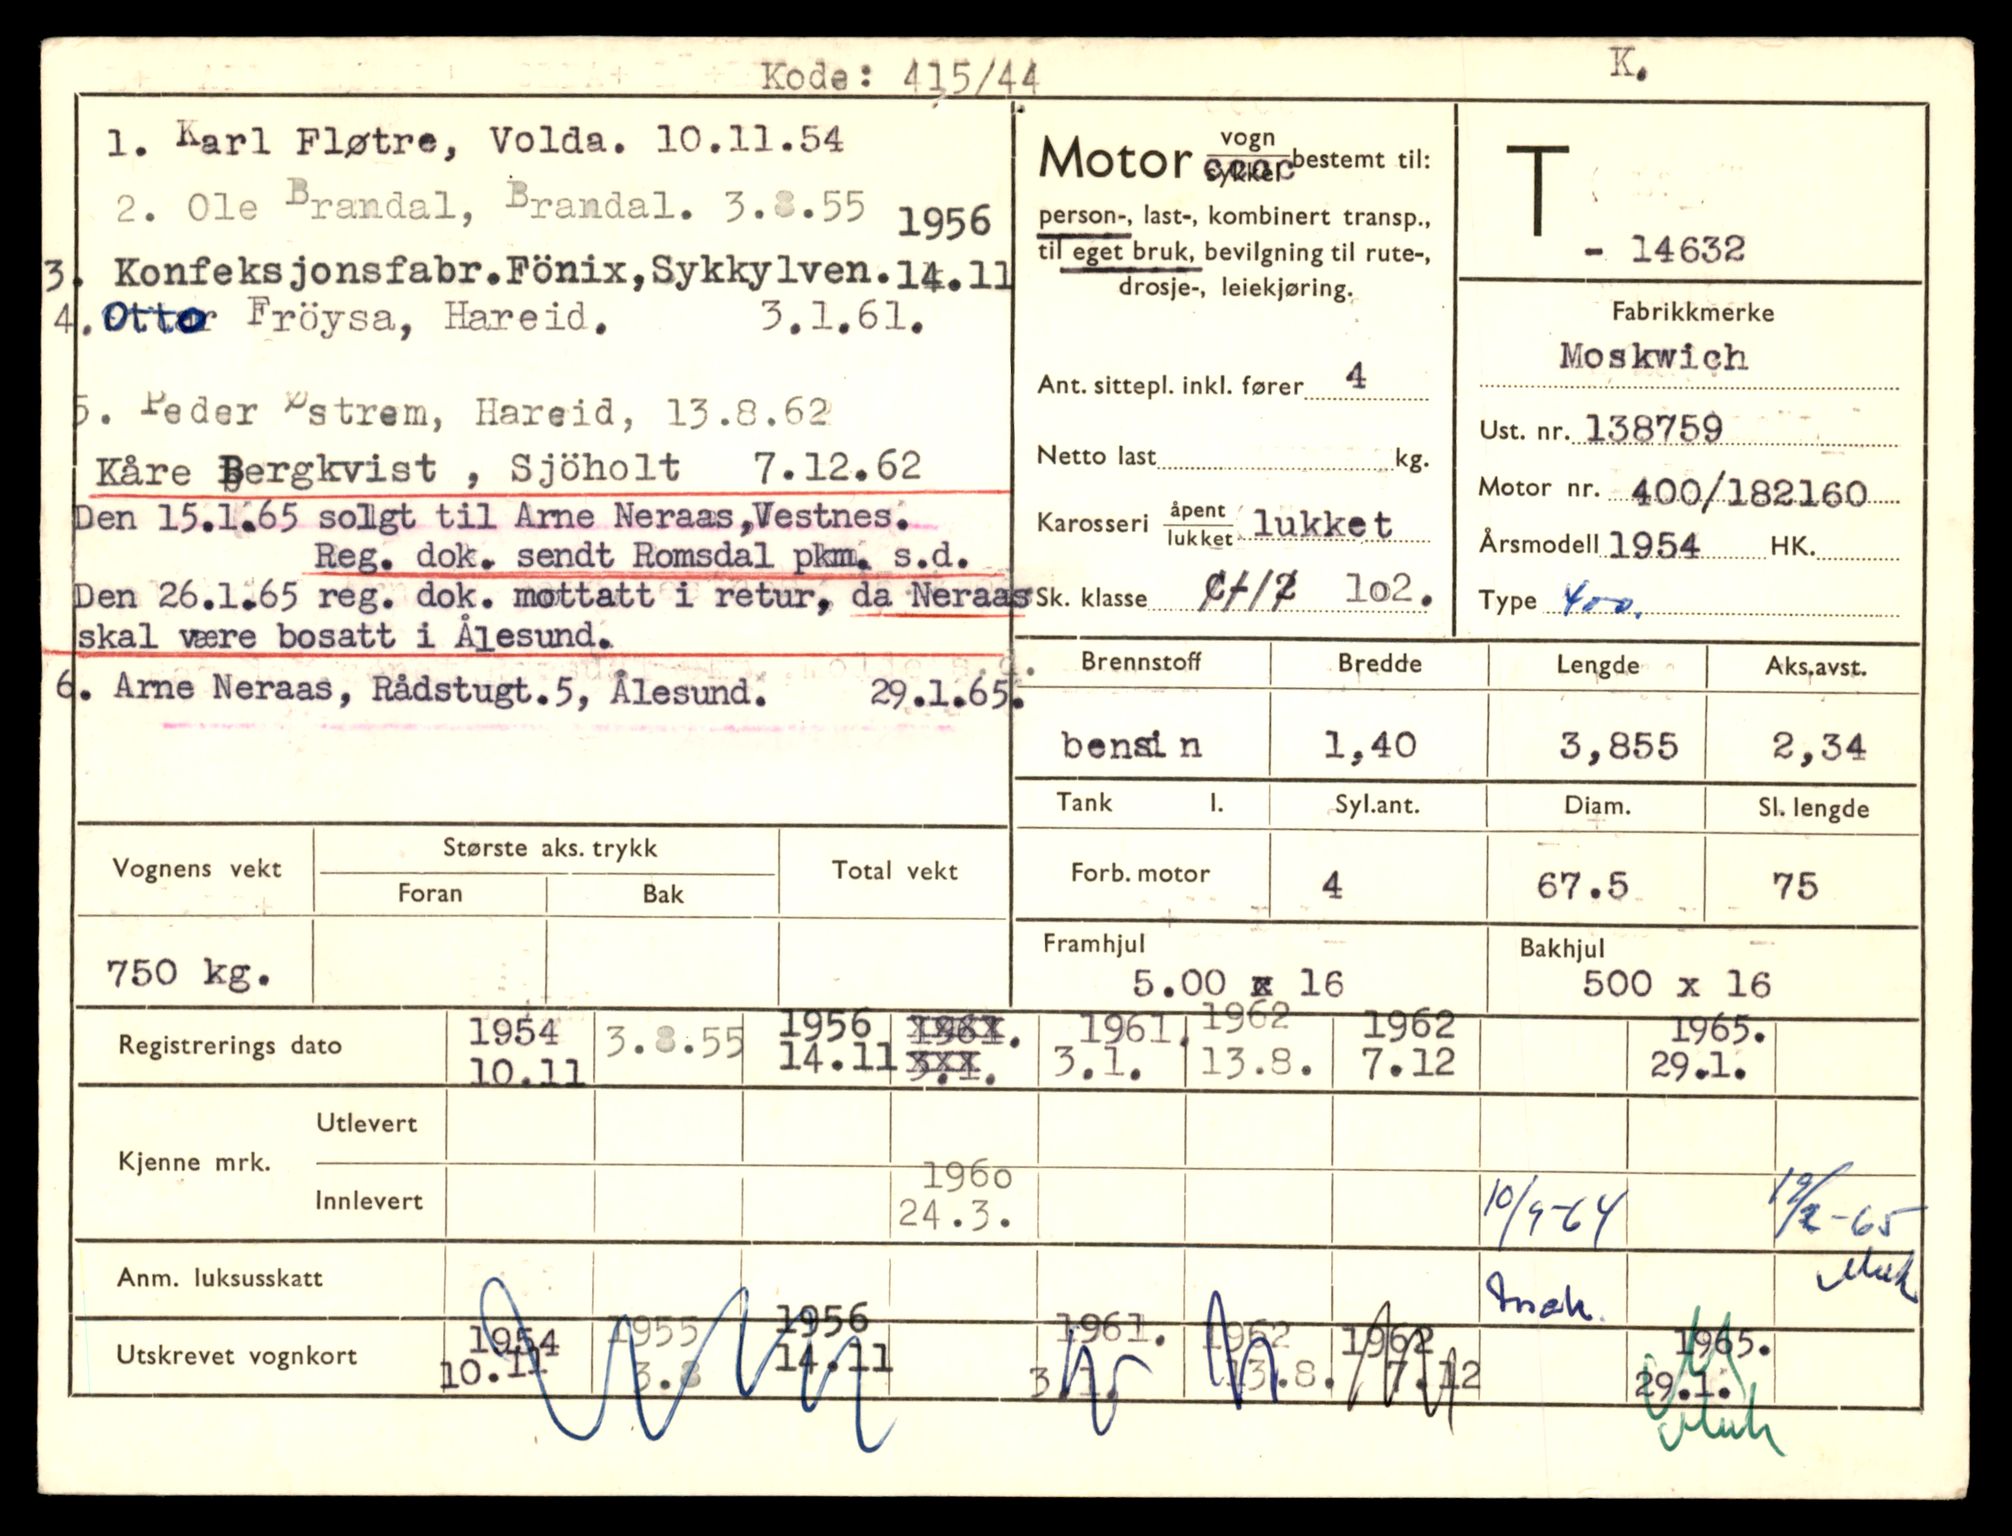 Kode: 415/44
K.
1. Karl Fløtre, Volda. 10.11.54
2. Ole Brandal, Brandal. 3.8.55
1956
3. Konfeksjonsfabr.Fönix,Sykkylven.14.11
4. Otto Fröysa, Hareid. 3.1.61.
5. Peder Østrem, Hareid, 13.8.62
Kåre Bergkvist , Sjöholt 7.12.62
Den 15.1.65 solgt til Arne Neraas,Vestnes.
Reg. dok. sendt Romsdal pkm. s.d.
Den 26.1.65 reg. dok. mottatt i retur, da Neraas
skal være bosatt i Ålesund.
6. Arne Neraas, Rådstugt.5, Ålesund. 29.1.65.
Motor vogn sykkel bestemt til:
person-, last-, kombinert transp.,
til eget bruk, bevilgning til rute-,
drosje-, leiekjøring.
Ant. sittepl. inkl. fører 4
Netto last kg.
Karosseri åpent lukket lukket
Sk. klasse 102.
T - 14632
Fabrikkmerke
Moskwich
Ust. nr. 138759
Motor nr. 400/182160
Årsmodell 1954 HK.
Type 400.
Brennstoff Bredde Lengde Aks.avst.
bensin 1,40 3,855 2,34
Tank l. Syl.ant. Diam. Sl. lengde
Forb. motor 4 67.5 75
Framhjul Bakhjul
5.00 x 16 500 x 16
Vognens vekt Største aks. trykk Total vekt
Foran Bak
750 kg.
Registrerings dato 1954 10.11 3.8.55 1956 14.11 1961. 3.1. 1961. 3.1. 1962 13.8. 1962 7.12 1965. 29.1.
Kjenne mrk. Utlevert
Innlevert 1960 24.3. 10/9-64 19/2-65
Anm. luksusskatt
Utskrevet vognkort 1954 10.11 1955 3.8 1956 14.11 1961. 3.1. 1962 13.8. 1962 7.12 1965. 29.1.